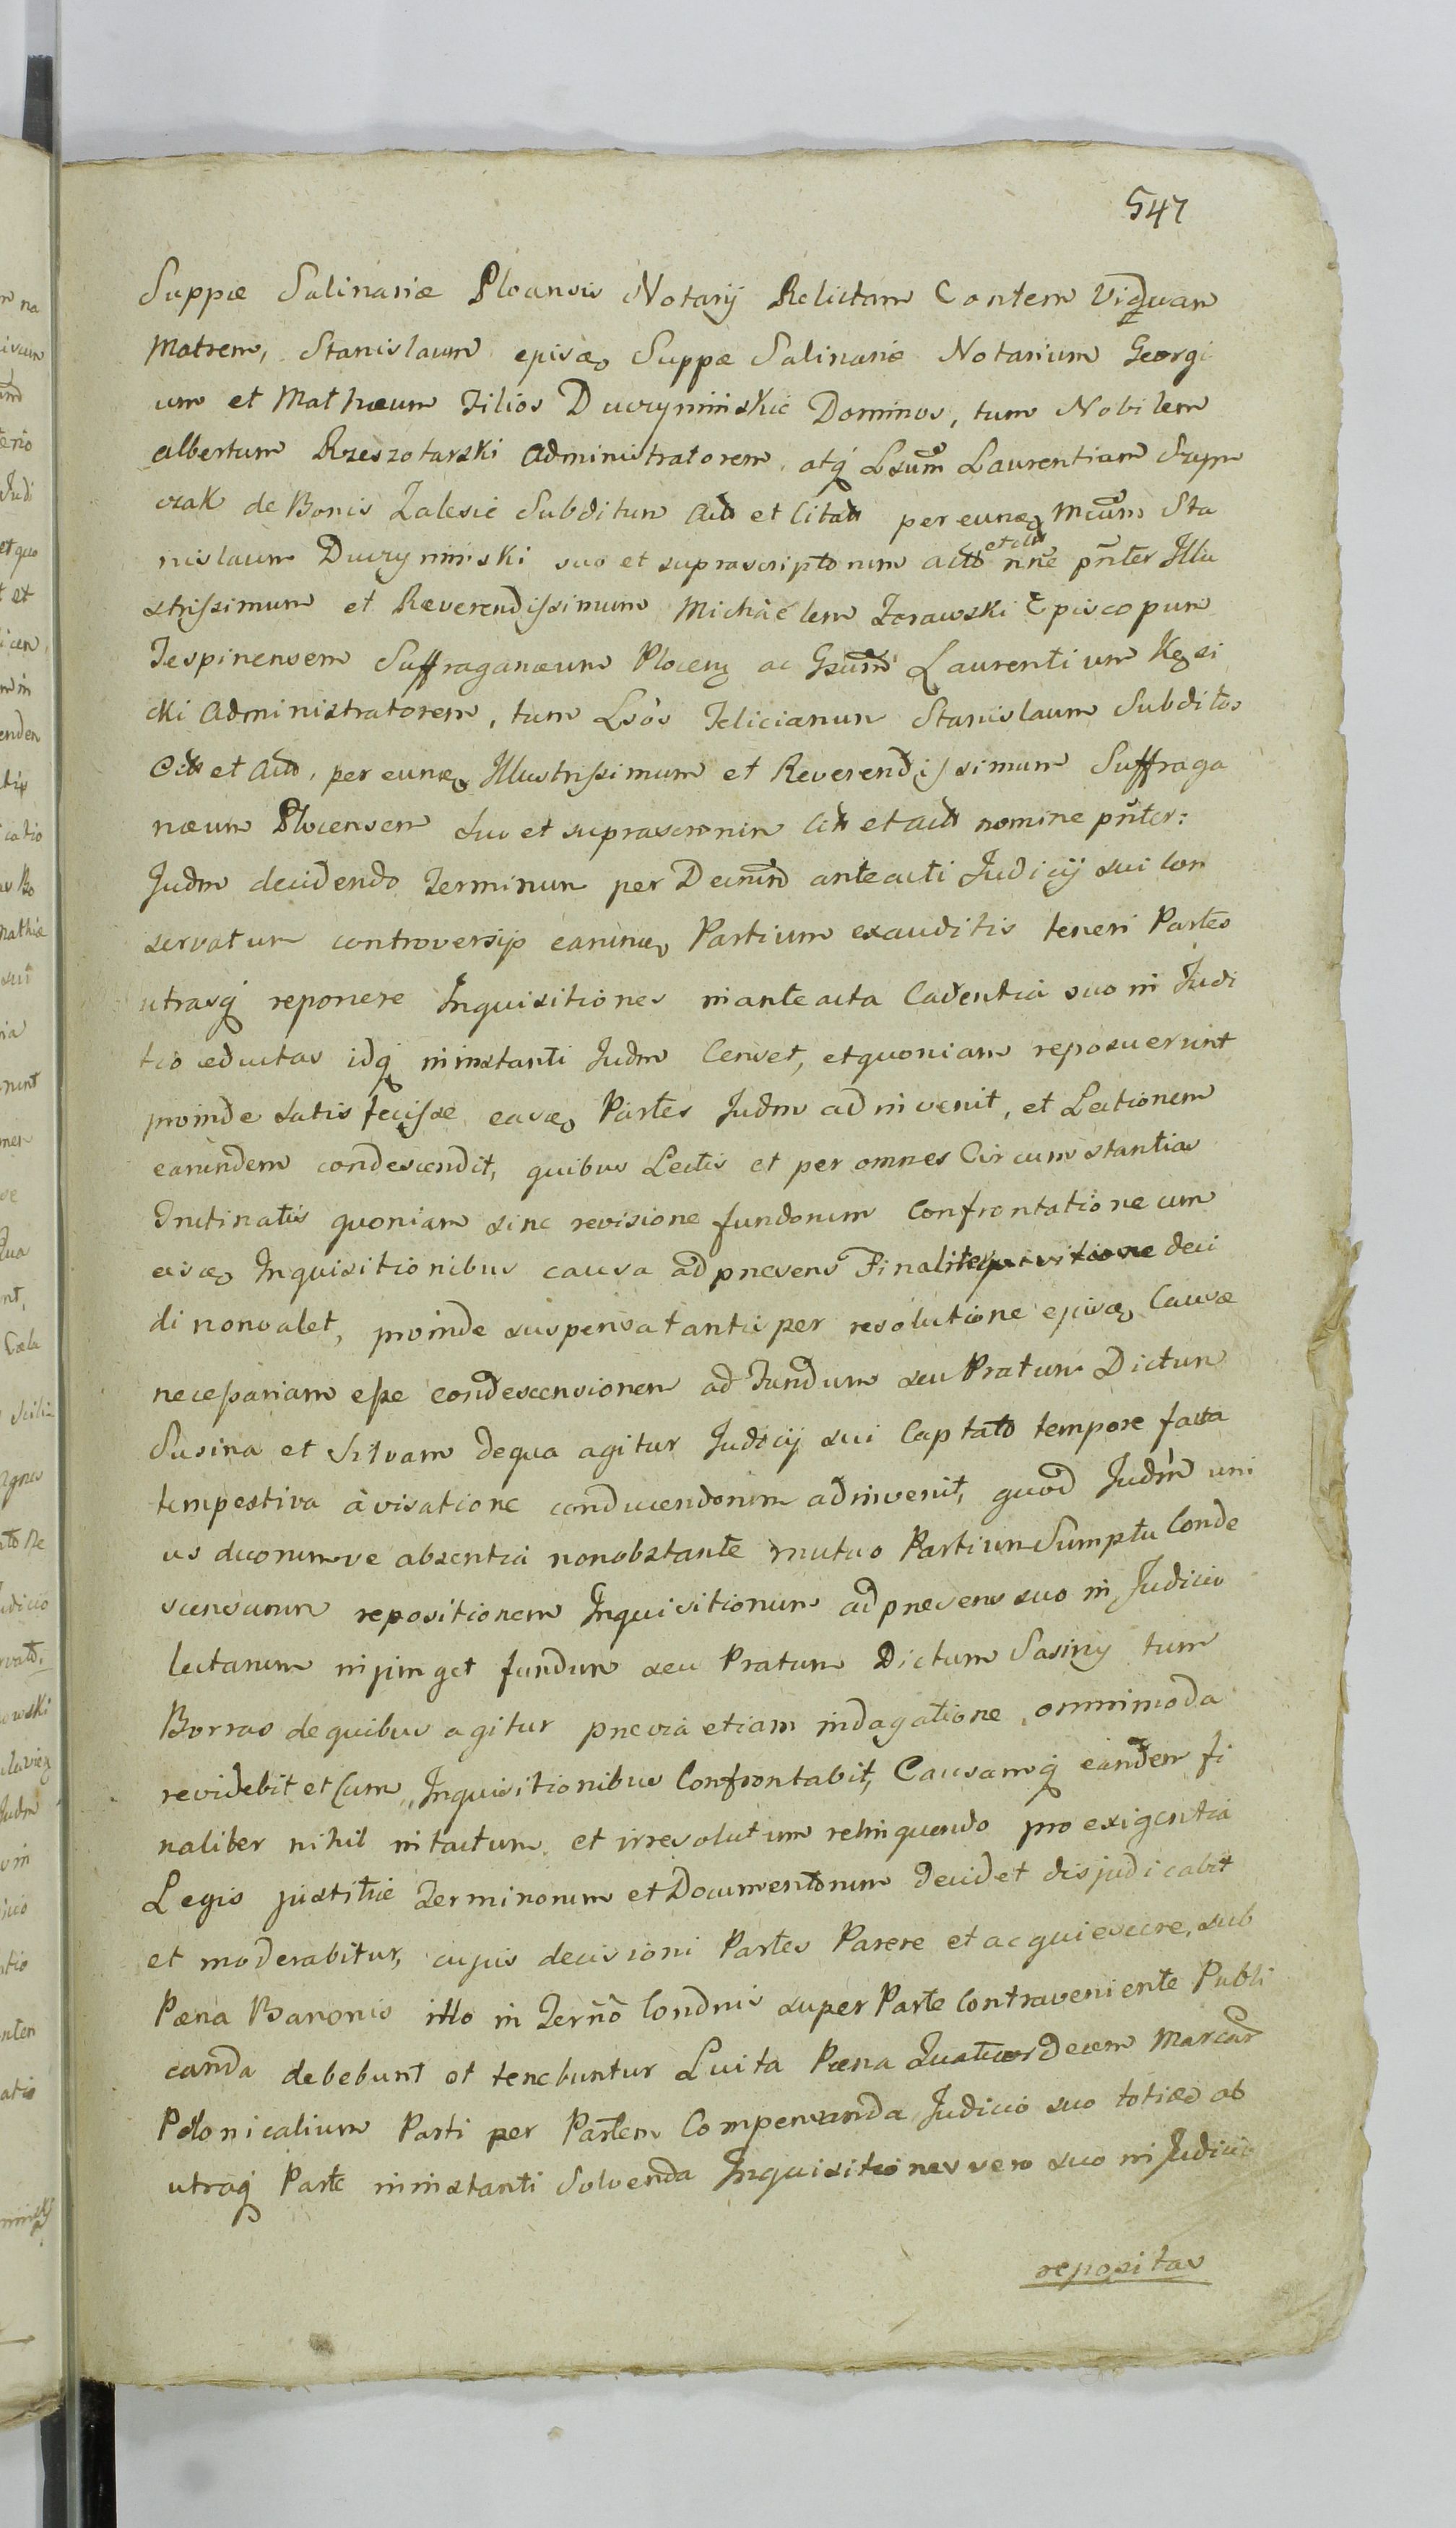 547
Suppæ Salinariæ Plocensis Notarij Relictam Contem Viduam
Matrem, Stanislaum ejusq Suppæ Salinariæ Notarium Georgi
um et Mathæum Filios Duczyminskie Dominos, tum Nobilem
albertum Rzeszotarski Administratorem, atq Lsum Laurentium Szym
czak de Bonis Zalesie Subditum Act et Citat per eunq Mcum Sta
nislaum Duczyminski suo et suprascriptorum act et cit nne pnter Illu
strissimum et Reverendissimum Michaelem Zorawski Episcopum
Tespinensem Suffraganæum Plocens ac Gsum Laurentium Kęsi
cki Administratorem, tum Lsos Felicianum Stanislaum Subditos
Citt et Act, per eunq Illustrissimum et Reverendissimum Suffraga
næum Plocensem Suo et suprascrorum Citt et actt nomine pnter:
Judm decidendo Terminum per Decrum anteacti Judicij sui con
servatum controversijs earumq Partium exauditis teneri Partes
utrasq reponere Inquisitiones in anteacta Cadentia suo in Judi
tio eductas idq in instanti Judm Censet, et quoniam reposuerunt
proinde satis fecisse easq Partes Judm adinvenit, et Lectionem
earundem condescendit, quibus Lectis et per omnes Circumstantias
Trutinatis quoniam sine revisione fundorum Confrontatione cum
eisq Inquisitionibus causa ad præsens Finali deci
di non valet, proinde suspensa tantisper resolutione ejusq Causæ
necessariam esse condescensionem ad Fundum seu Pratum Dictum
Susina et Silvam de qua agitur Judicij sui Captato tempore facta
tempestiva àvisatione conducendorum adinvenit, quod Judm uni
us duorumve absentia non obstante mutuo Partium Sumptu Conde
scensurum repositionem Inquisitionum ad præsens suo in Judicio
lectarum injunget fundum seu Pratum Dictum Sasiny tum
Borras de quibus agitur prævia etiam indagatione, omnimoda
revidebit et Cum Inquisitionibus Confrontabit, Causamq eandem fi
naliter nihil intactum et irresolutum relinquendo pro exigentia
Legis justitiæ Terminorum et Documentorum decidet disjudicabit
et moderabitur, cujus decisioni Partes Parere et acquiescere, sub
Pæna Banonis illo in Terno Condnis super Parte Contraveniente Publi
canda debebunt et tenebuntur Luita Pæna Quatuordecem Marcar
Polonicalium Parti per Partem Compensanda Judicio suo toties ab
utraq Parte in instanti Solvenda Inquisitiones vero suo in Judicio
repositas